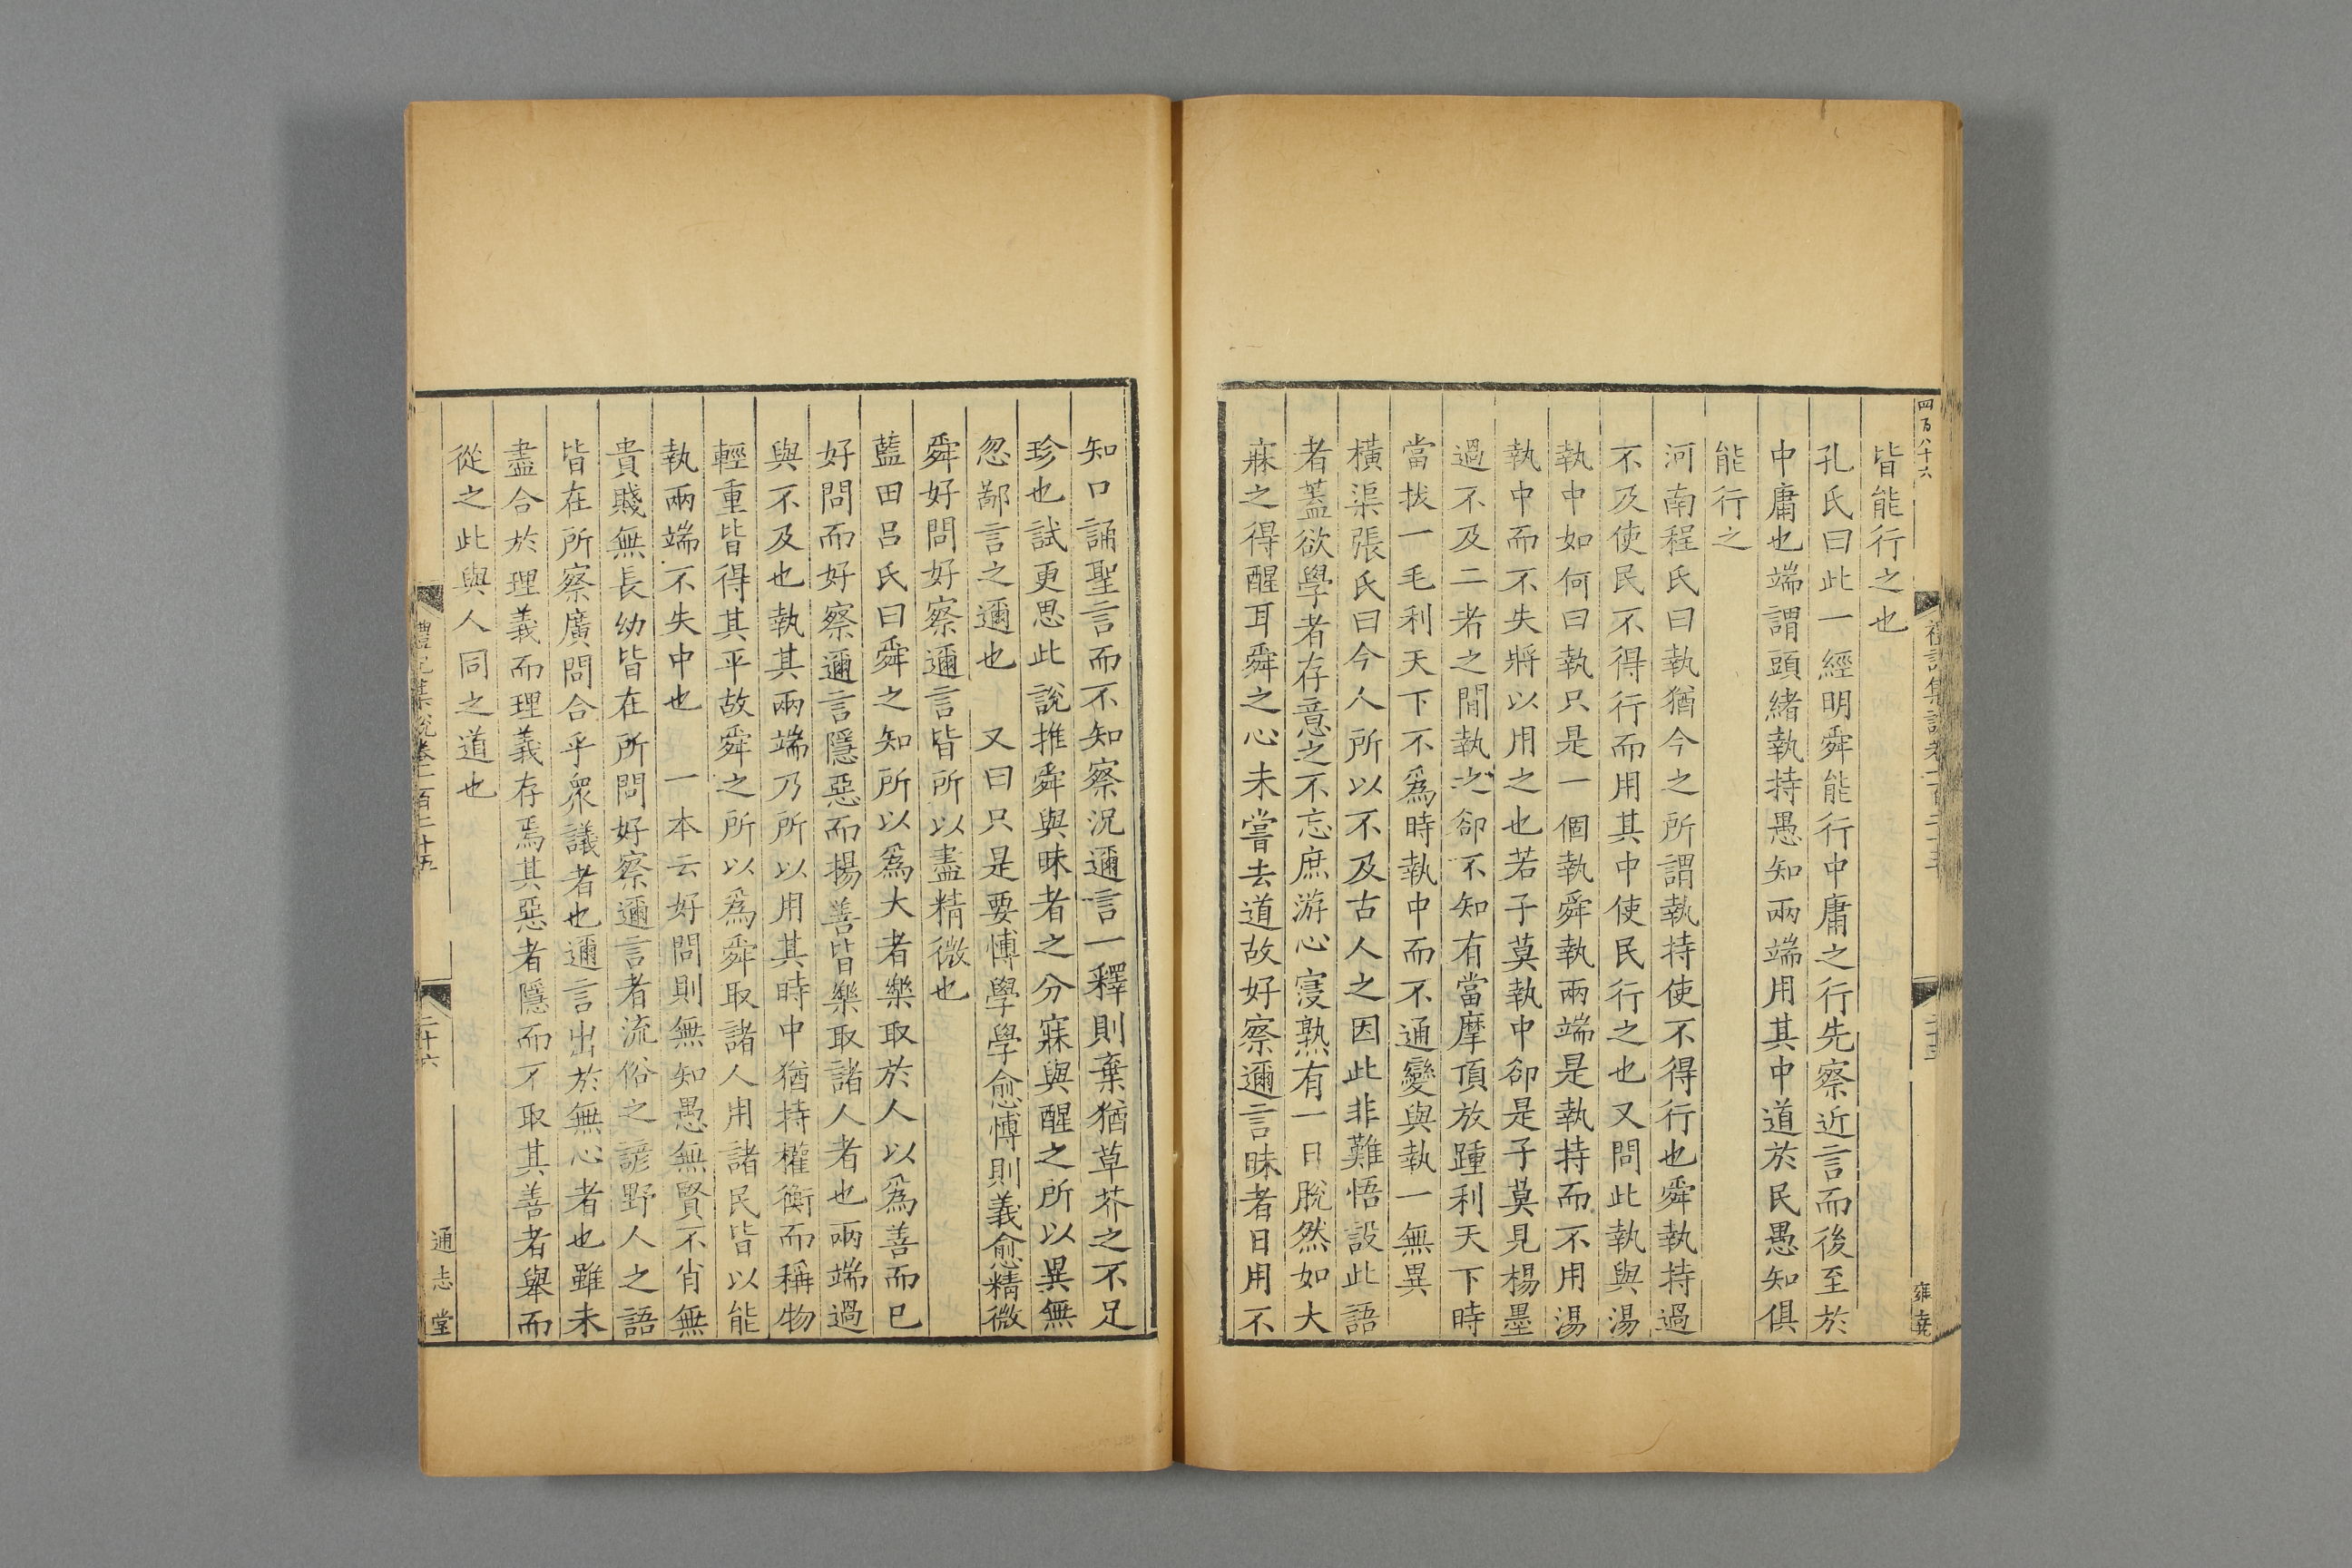 四百八十六
皆能行之也
孔氏曰此一經明舜能行中庸之行先察近言而後至於
中庸也端謂頭緒執持愚知兩端用其中道於民愚知俱
能行之
河南程氏曰執猶今之所謂執持使不得行也舜執持過
不及使民不得行而用其中使民行之也又問此執與湯
執中如何曰執只是一個執舜執兩端是執持而不用湯
執中而不失將以用之也若子莫執中卻是子莫見楊墨
過不及二者之間執之卻不知有當摩頂放踵利天下時
當拔一毛利天下不爲時執中而不通變與執一無異
橫渠張氏曰今人所以不及古人之因此非難悟設此語
者蓋欲學者存意之不忘庶游心寖熟有一日脫然如大
寐之得醒耳舜之心未嘗去道故好察邇言昧者日用不
知口誦聖言而不知察況邇言一釋則棄猶草芥之不足
珍也試更思此說推舜與昧者之分寐與醒之所以異無
忽鄙言之邇也 又曰只是要博學學愈博則義愈精微
舜好問好察邇言皆所以盡精微也
藍田呂氏曰舜之知所以爲大者樂取於人以爲善而已
好問而好察邇言隱惡而揚善皆樂取諸人者也兩端過
與不及也執其兩端乃所以用其時中猶持權衡而稱物
輕重皆得其平故舜之所以爲舜取諸人用諸民皆以能
執兩端不失中也 一本云好問則無知愚無賢不肖無
貴賤無長幼皆在所問好察邇言者流俗之諺野人之語
皆在所察廣問合乎衆議者也邇言出於無心者也雖未
盡合於理義而理義存焉其惡者隱而不取其善者舉而
從之此與人同之道也
禮記集說卷一百二十五
二十六
通志堂